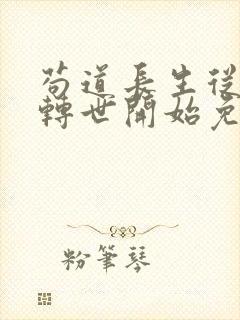 苟道長生從
轉世開始免
粉筆琴